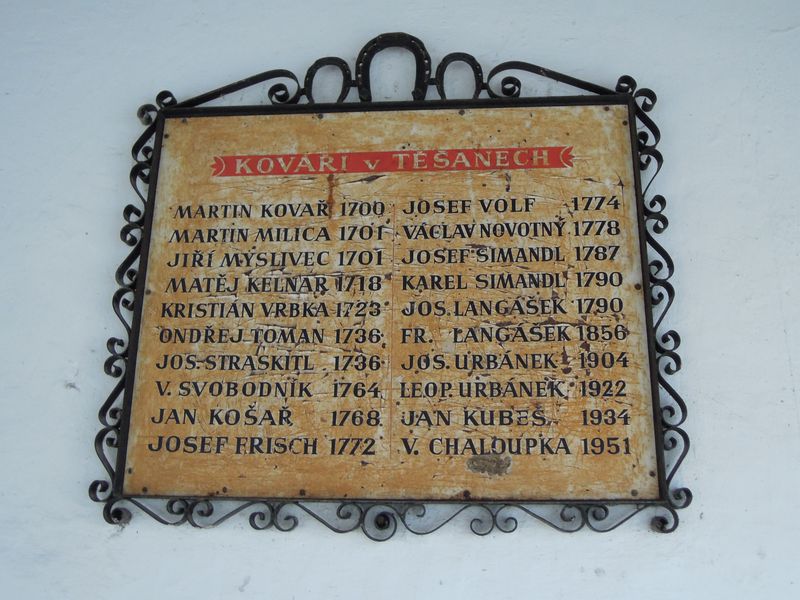 KOVÁŘI v TĚŠANECH
MARTIN KOVAŘ 1700
MARTIN MILICA 1701
JIŘÍ MYSLIVEC 1701
MATĚJ KELNAR 1718
KRISTIÁN VRBKA 1723
ONDŘEJ TOMAN 1736
JOS. STRASKITL 1736
V. SVOBODNÍK 1764
JAN KOŠAŘ 1768
JOSEF FRISCH 1772
JOSEF VOLF 1774
VÁCLAV NOVOTNÝ 1778
JOSEF SIMANDL 1787
KAREL SIMANDL 1790
JOS. LANGÁŠEK 1790
FR. LANGÁŠEK 1856
JOS. URBÁNEK 1904
LEOP. URBÁNEK 1922
JAN KUBEŠ 1934
V. CHALOUPKA 1951